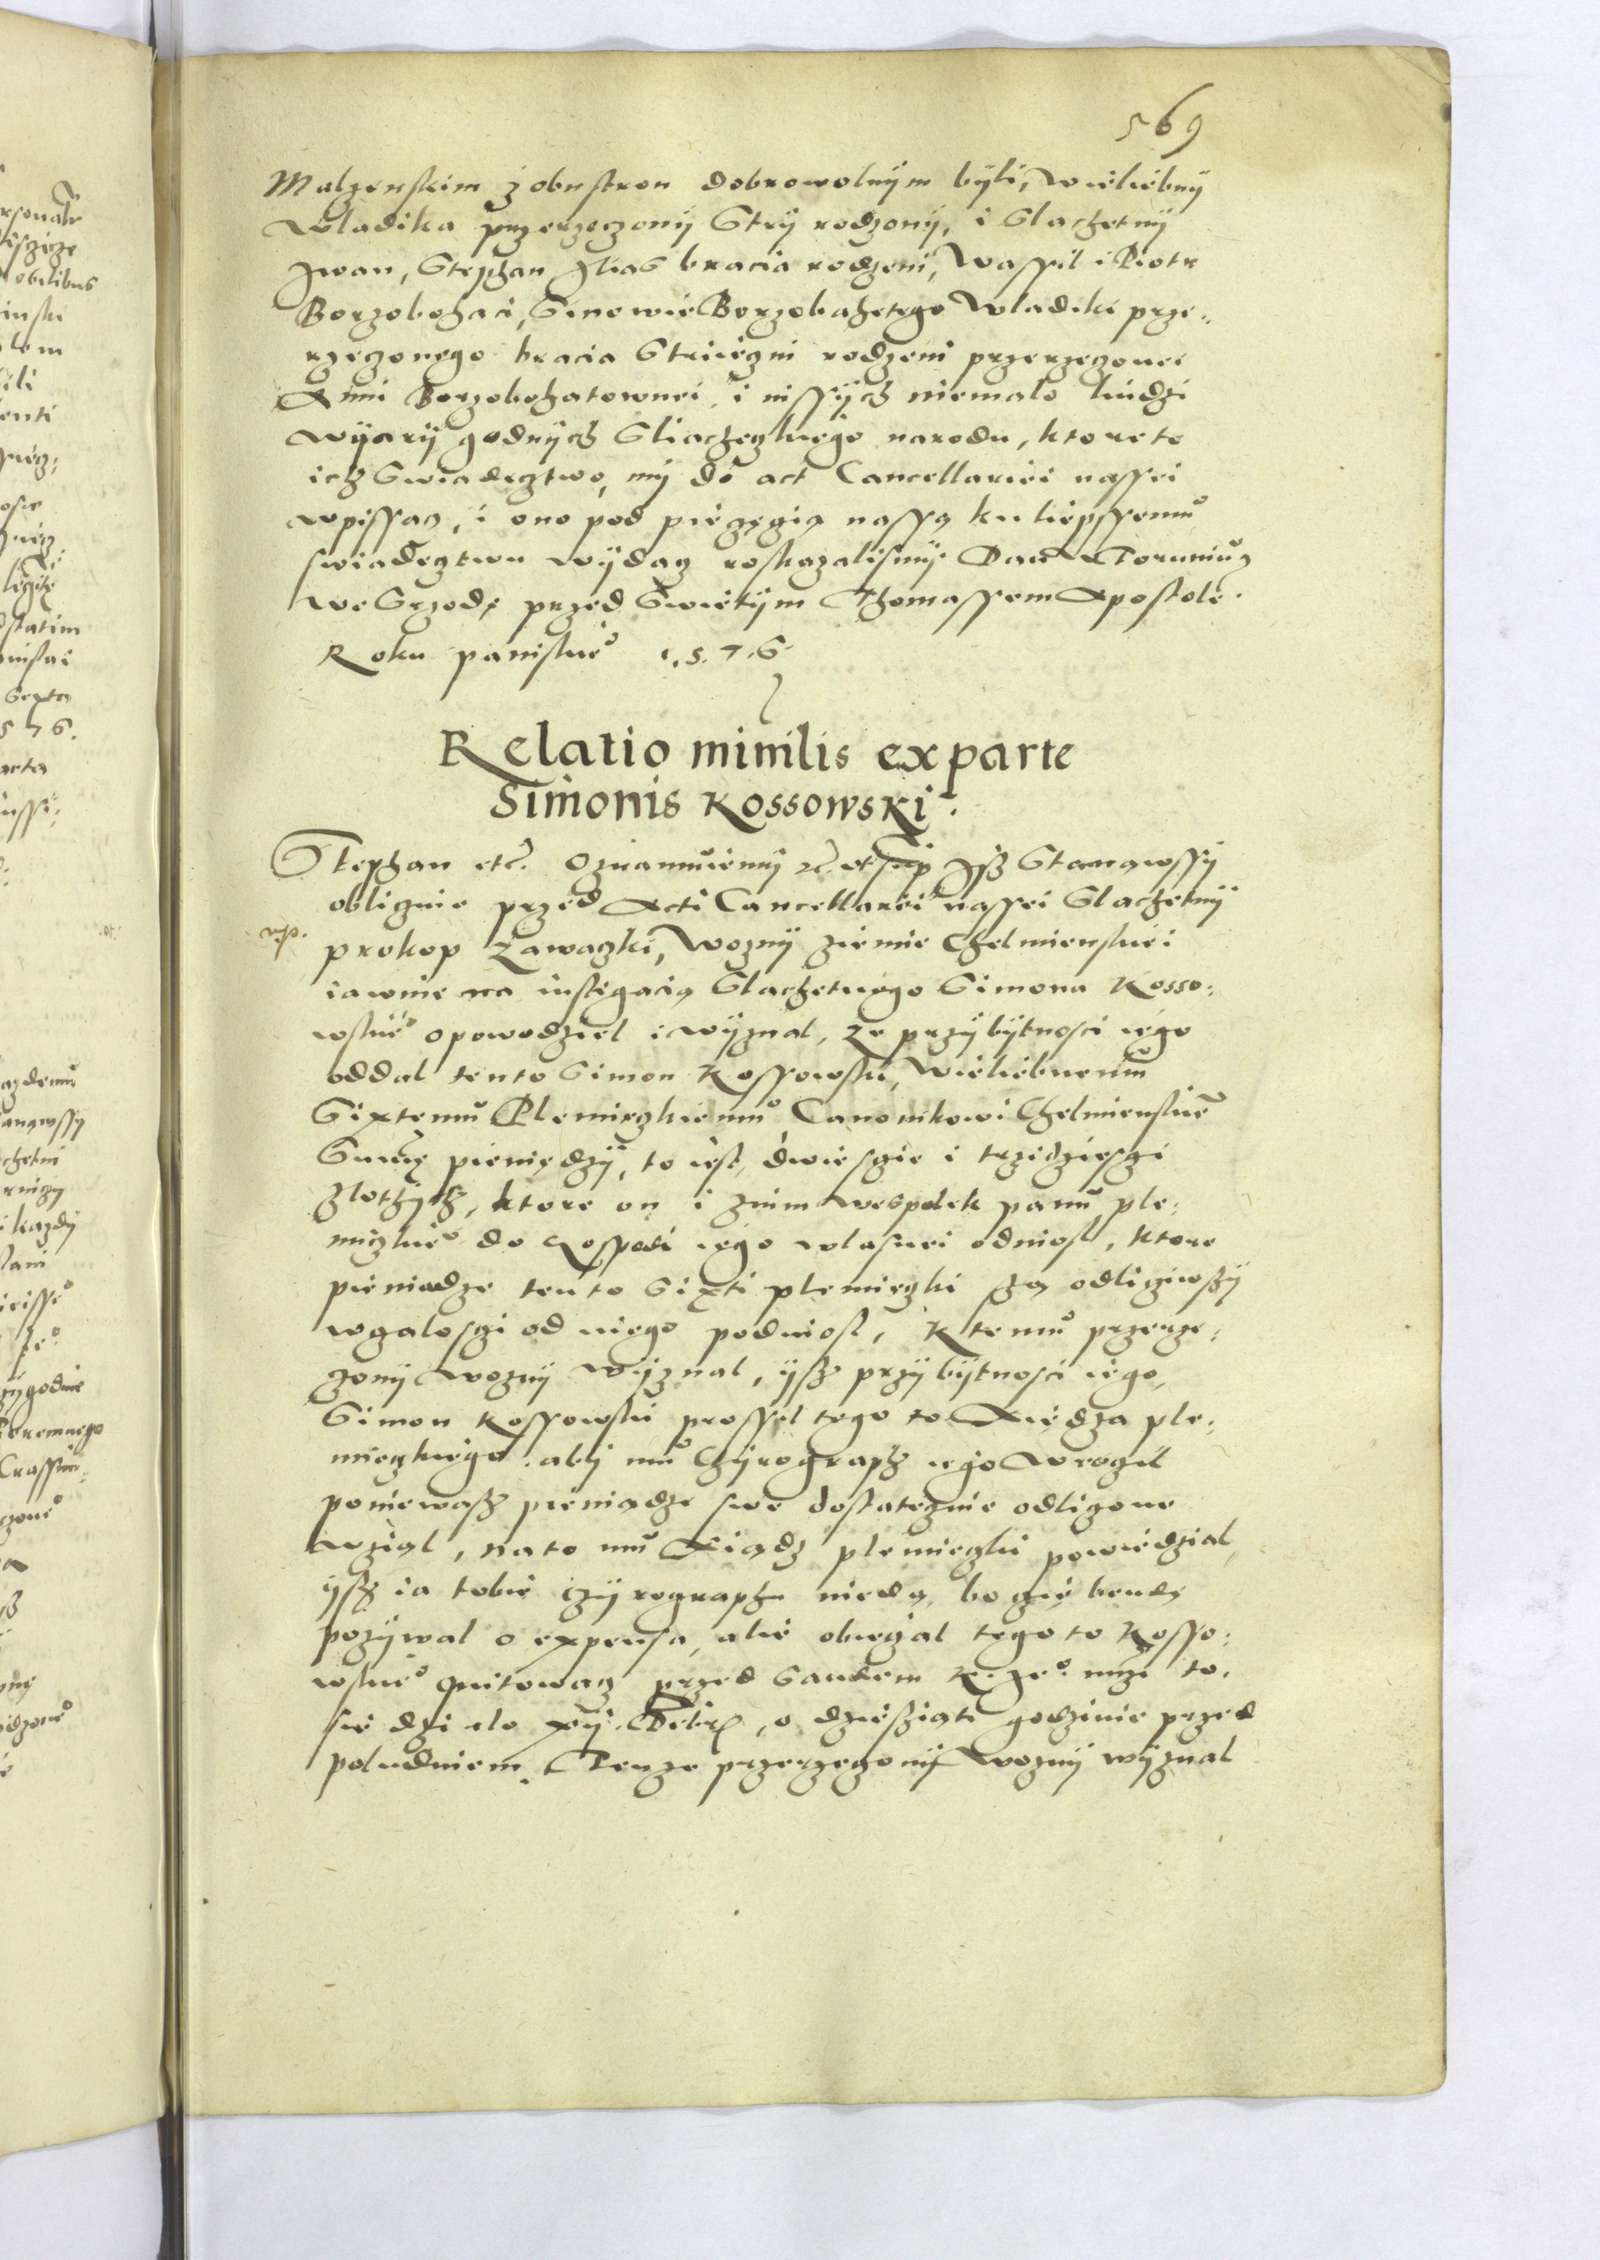 569
Malzenskim z obustron dobrowolnym byli, Wieliebny
Wladika przerzeczony Stry rodzony, i Slachetny
Iwan, Stephan Ilias bracia rodzeni, Wassil i Piotr
Borzobohaci, Sinowie Borzobohatego Wladiki prze„
rzeczonego bracia Striiezni rodzeni przerzeczonei
Anni Borzobohatownei, i nissÿch niemalo liudzi
wÿarÿ godnÿch Sliacheczkiego narodu, ktore to
ich Swiadecztwo, mÿ do act Cancellariei nassei
wpissacz, i ono pod pieczęcią nassą ku liepssemu
swiadecztwu wÿdacz roskazalismÿ. Dan w Toruniu
we Srzodę przed Swietÿm Thomassem Apostolē.
Roku paniskiē 1.5.7.6.
Relatio ministerialis ex parte
Simonis Kossowski.
Stephan etc. Oznaimuiemÿ etc. ut sup Isz Stanąwssÿ
oblicznie przed Acti Cancellariei nassei Slachetnÿ
Prokop Zawaczki, Woznÿ ziemie Chelmienskiei
iawnie na instigacią Slachetnego Simona Kosso:
wskie° opowiedziel i wÿznal, ze przÿ bÿtnosci iego
oddal tento Simon Kossowski, Wieliebnemu
Sixtemu Plemieczkiemu Canonikowi Chelmienskie°
Summę pieniędzÿ, to iest, dwiesczie i trzidziesczi
zlotÿch, ktore on i znim wespolek panu ple:
miczkie° do Gospodi iego wlasnei odniosl, ktore
pieniadze tento Sixti plemieczki odliczÿwssÿ
w calosczi od niego podniosl, K temu przerze:
zonÿ woznÿ wÿznal, ÿsz przÿ bÿtnosci iego,
Simon Kossowski prossil tego to Xiędza ple:
mieczkiego. abÿ mu Chÿrograph iego wroczil
poniewasz pieniadze swe dostatecznie odliczone
wzial, na to mu Xiądz plemieczki powiedzial,
ÿsz ia tobie chÿrographu niedą, bo czie bendę
pozÿwal o expensa, alie obieczal tego to Kosso:
wskie° quitowacz przed Sandem K. Je° mczi to.
sie dzialo xvÿ. Xbris, o dziesziąti godzinie przed
poludniem. Tenze przerzeczonÿ woznÿ wÿznal